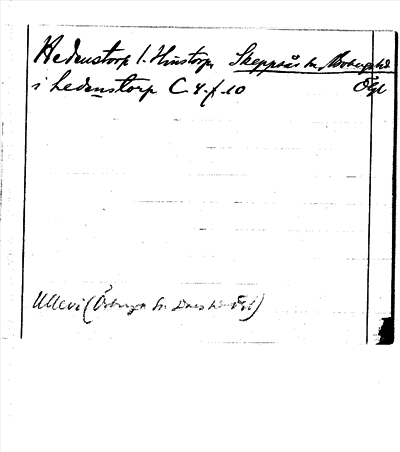 Hedenstorp l. Hinstorp, Skeppsås sn, Bobergs hd
i hedenstorp C 4 f. 10 Ögl
Ullevi (Örberga sn Dals hd Ögl)